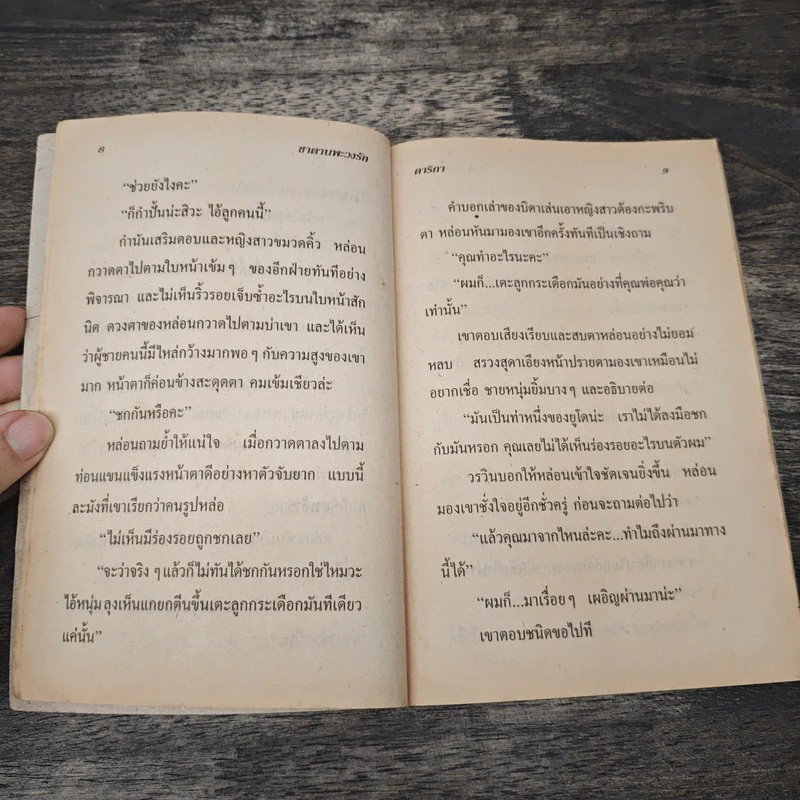 ๘ ซาตานพะวงรัก
“ช่วยยังไงคะ”
“ก็กำปั้นน่ะสิวะ ไอ้ลูกคนนี้”
กำนันเสริมตอบและหญิงสาวขมวดคิ้ว หล่อน
กวาดตาไปตามใบหน้าเข้มๆ ของอีกฝ่ายทันทีอย่าง
พิจารณา และไม่เห็นริ้วรอยเจ็บช้ำอะไรบนใบหน้าสัก
นิด ดวงตาของหล่อนกวาดไปตามบ่าเขา และได้เห็น
ว่าผู้ชายคนนี้มีไหล่กว้างมากพอๆ กับความสูงของเขา
มาก หน้าตาก็ค่อนข้างสะดุดตา คมเข้มเชียวล่ะ
“ชกกันหรือคะ”
หล่อนถามย้ำให้แน่ใจ เมื่อกวาดตาลงไปตาม
ท่อนแขนแข็งแรงหน้าตาดีอย่างหาตัวจับยาก แบบนี้
ละมังที่เขาเรียกว่าคนรูปหล่อ
“ไม่เห็นมีร่องรอยถูกชกเลย”
“จะว่าจริงๆ แล้วก็ไม่ทันได้ชกกันหรอกใช่ไหมวะ
ไอ้หนุ่ม ลุงเห็นแกยกตีนขึ้นเตะลูกกระเดือกมันทีเดียว
แค่นั้น”
ดาริกา ๙
คำบอกเล่าของบิดาเล่นเอาหญิงสาวต้องกะพริบ
ตา หล่อนหันมามองเขาอีกครั้งทันทีเป็นเชิงถาม
“คุณทำอะไรนะคะ”
“ผมก็...เตะลูกกระเดือกมันอย่างที่คุณพ่อคุณว่า
เท่านั้น”
เขาตอบเสียงเรียบและสบตาหล่อนอย่างไม่ยอม
หลบ สรวงสุดาเอียงหน้าปรายตามองเขาเหมือนไม่
อยากเชื่อ ชายหนุ่มยิ้มบางๆ และอธิบายต่อ
“มันเป็นท่าหนึ่งของยูโดน่ะ เราไม่ได้ลงมือชก
กับมันหรอก คุณเลยไม่ได้เห็นร่องรอยอะไรบนตัวผม”
วรวินบอกให้หล่อนเข้าใจชัดเจนยิ่งขึ้น หล่อน
มองเขาชั่งใจอยู่อีกชั่วครู่ ก่อนจะถามต่อไปว่า
“แล้วคุณมาจากไหนล่ะคะ...ทำไมถึงผ่านมาทาง
นี้ได้”
“ผมก็...มาเรื่อยๆ เผอิญผ่านมาน่ะ”
เขาตอบชนิดขอไปที